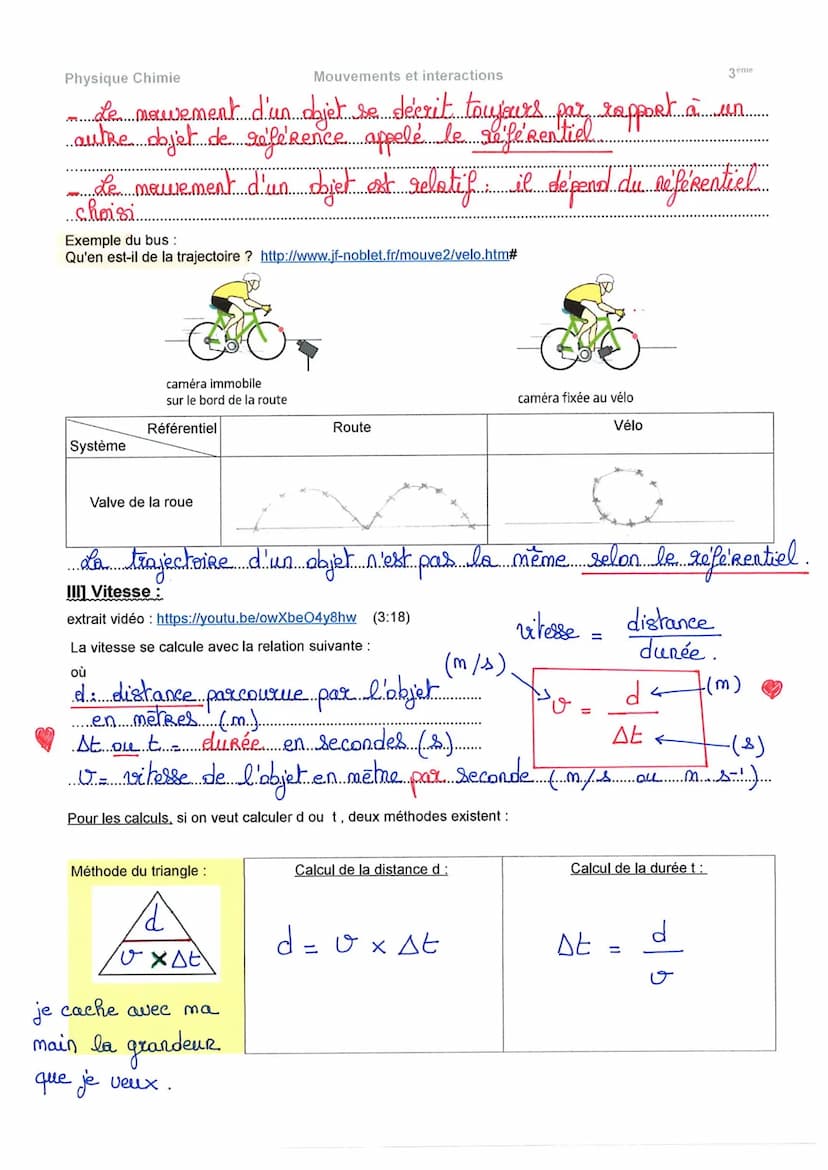 Physique Chimie Mouvements et interactions 3eme
- Le mouvement d'un objet se décrit toujours par rapport à un
autre objet de référence appelé le référentiel
- Le mouvement d'un objet est relatif : il dépend du référentiel
choisi
Exemple du bus :
Qu'en est-il de la trajectoire ? http://www.jf-noblet.fr/mouve2/velo.htm#
caméra immobile
sur le bord de la route
caméra fixée au vélo
Référentiel Route Vélo
Système
Valve de la roue
La trajectoire d'un objet n'est pas la même selon le référentiel.
III] Vitesse :
extrait vidéo : https://youtu.be/owXbeO4y8hw (3:18)
vitesse = distance / durée.
La vitesse se calcule avec la relation suivante :
où
(m/s)
v = d / Δt
(m)
(s)
d : distance parcourue par l'objet
en mètres (m)
Δt ou t = durée en secondes (s)
v = vitesse de l'objet en mètre par seconde (m/s ou m.s⁻¹)
Pour les calculs, si on veut calculer d ou t , deux méthodes existent :
Méthode du triangle :
d
v × Δt
je cache avec ma
main la grandeur
que je veux .
Calcul de la distance d :
d = v × Δt
Calcul de la durée t :
Δt = d / v